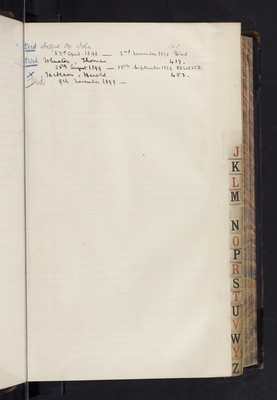 Died
23rd April 1898 — 2nd November 1898 Died.
Died Johnston, Thomas 419.
28th August 1899 — 15th September 1899 RELIEVED.
X Jackson, Harold 453.
Died 9th November 1899 —
J
K
L
M
N
O
P
R
S
T
U
V
W
Y
Z